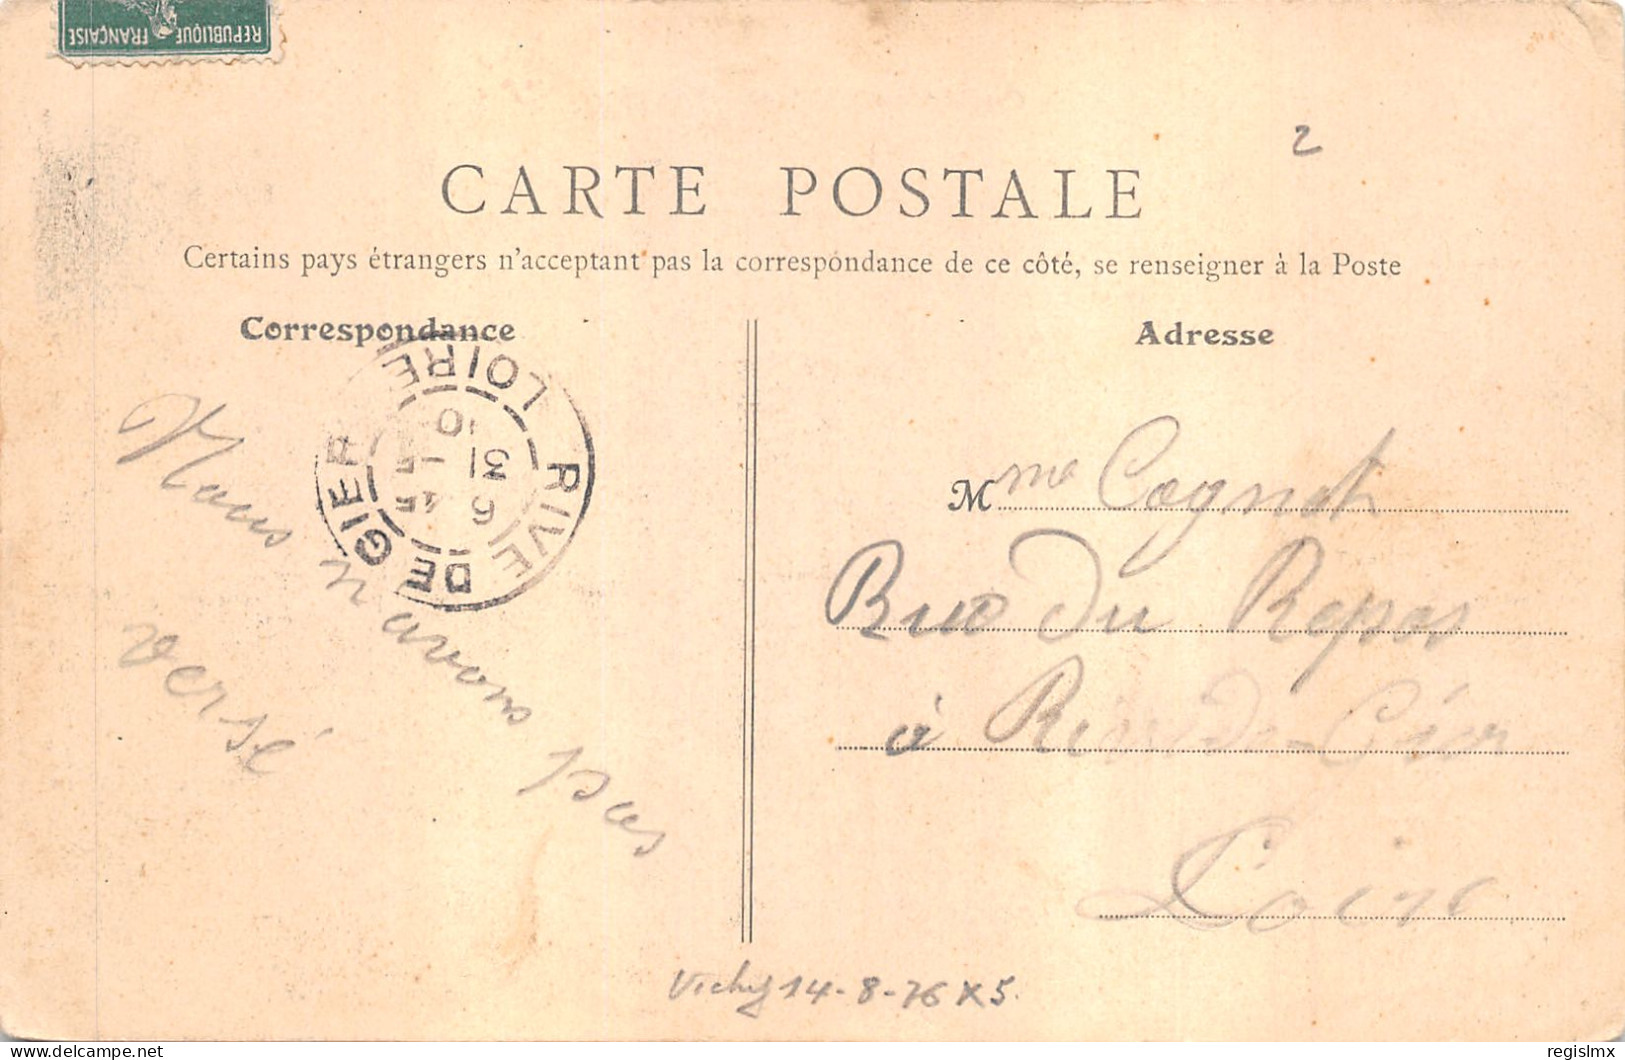 REPUBLIQUE FRANÇAISE
2
CARTE POSTALE
Certains pays étrangers n'acceptant pas la correspondance de ce côté, se renseigner à la Poste
Correspondance
Adresse
RIVE DE GIER
LOIRE
Nous n'avons pas
versé
Mme Cognet
Rue du Repos
à Rive-de-Gier
Loire
Vichy 14-8-76 X5
regislmx